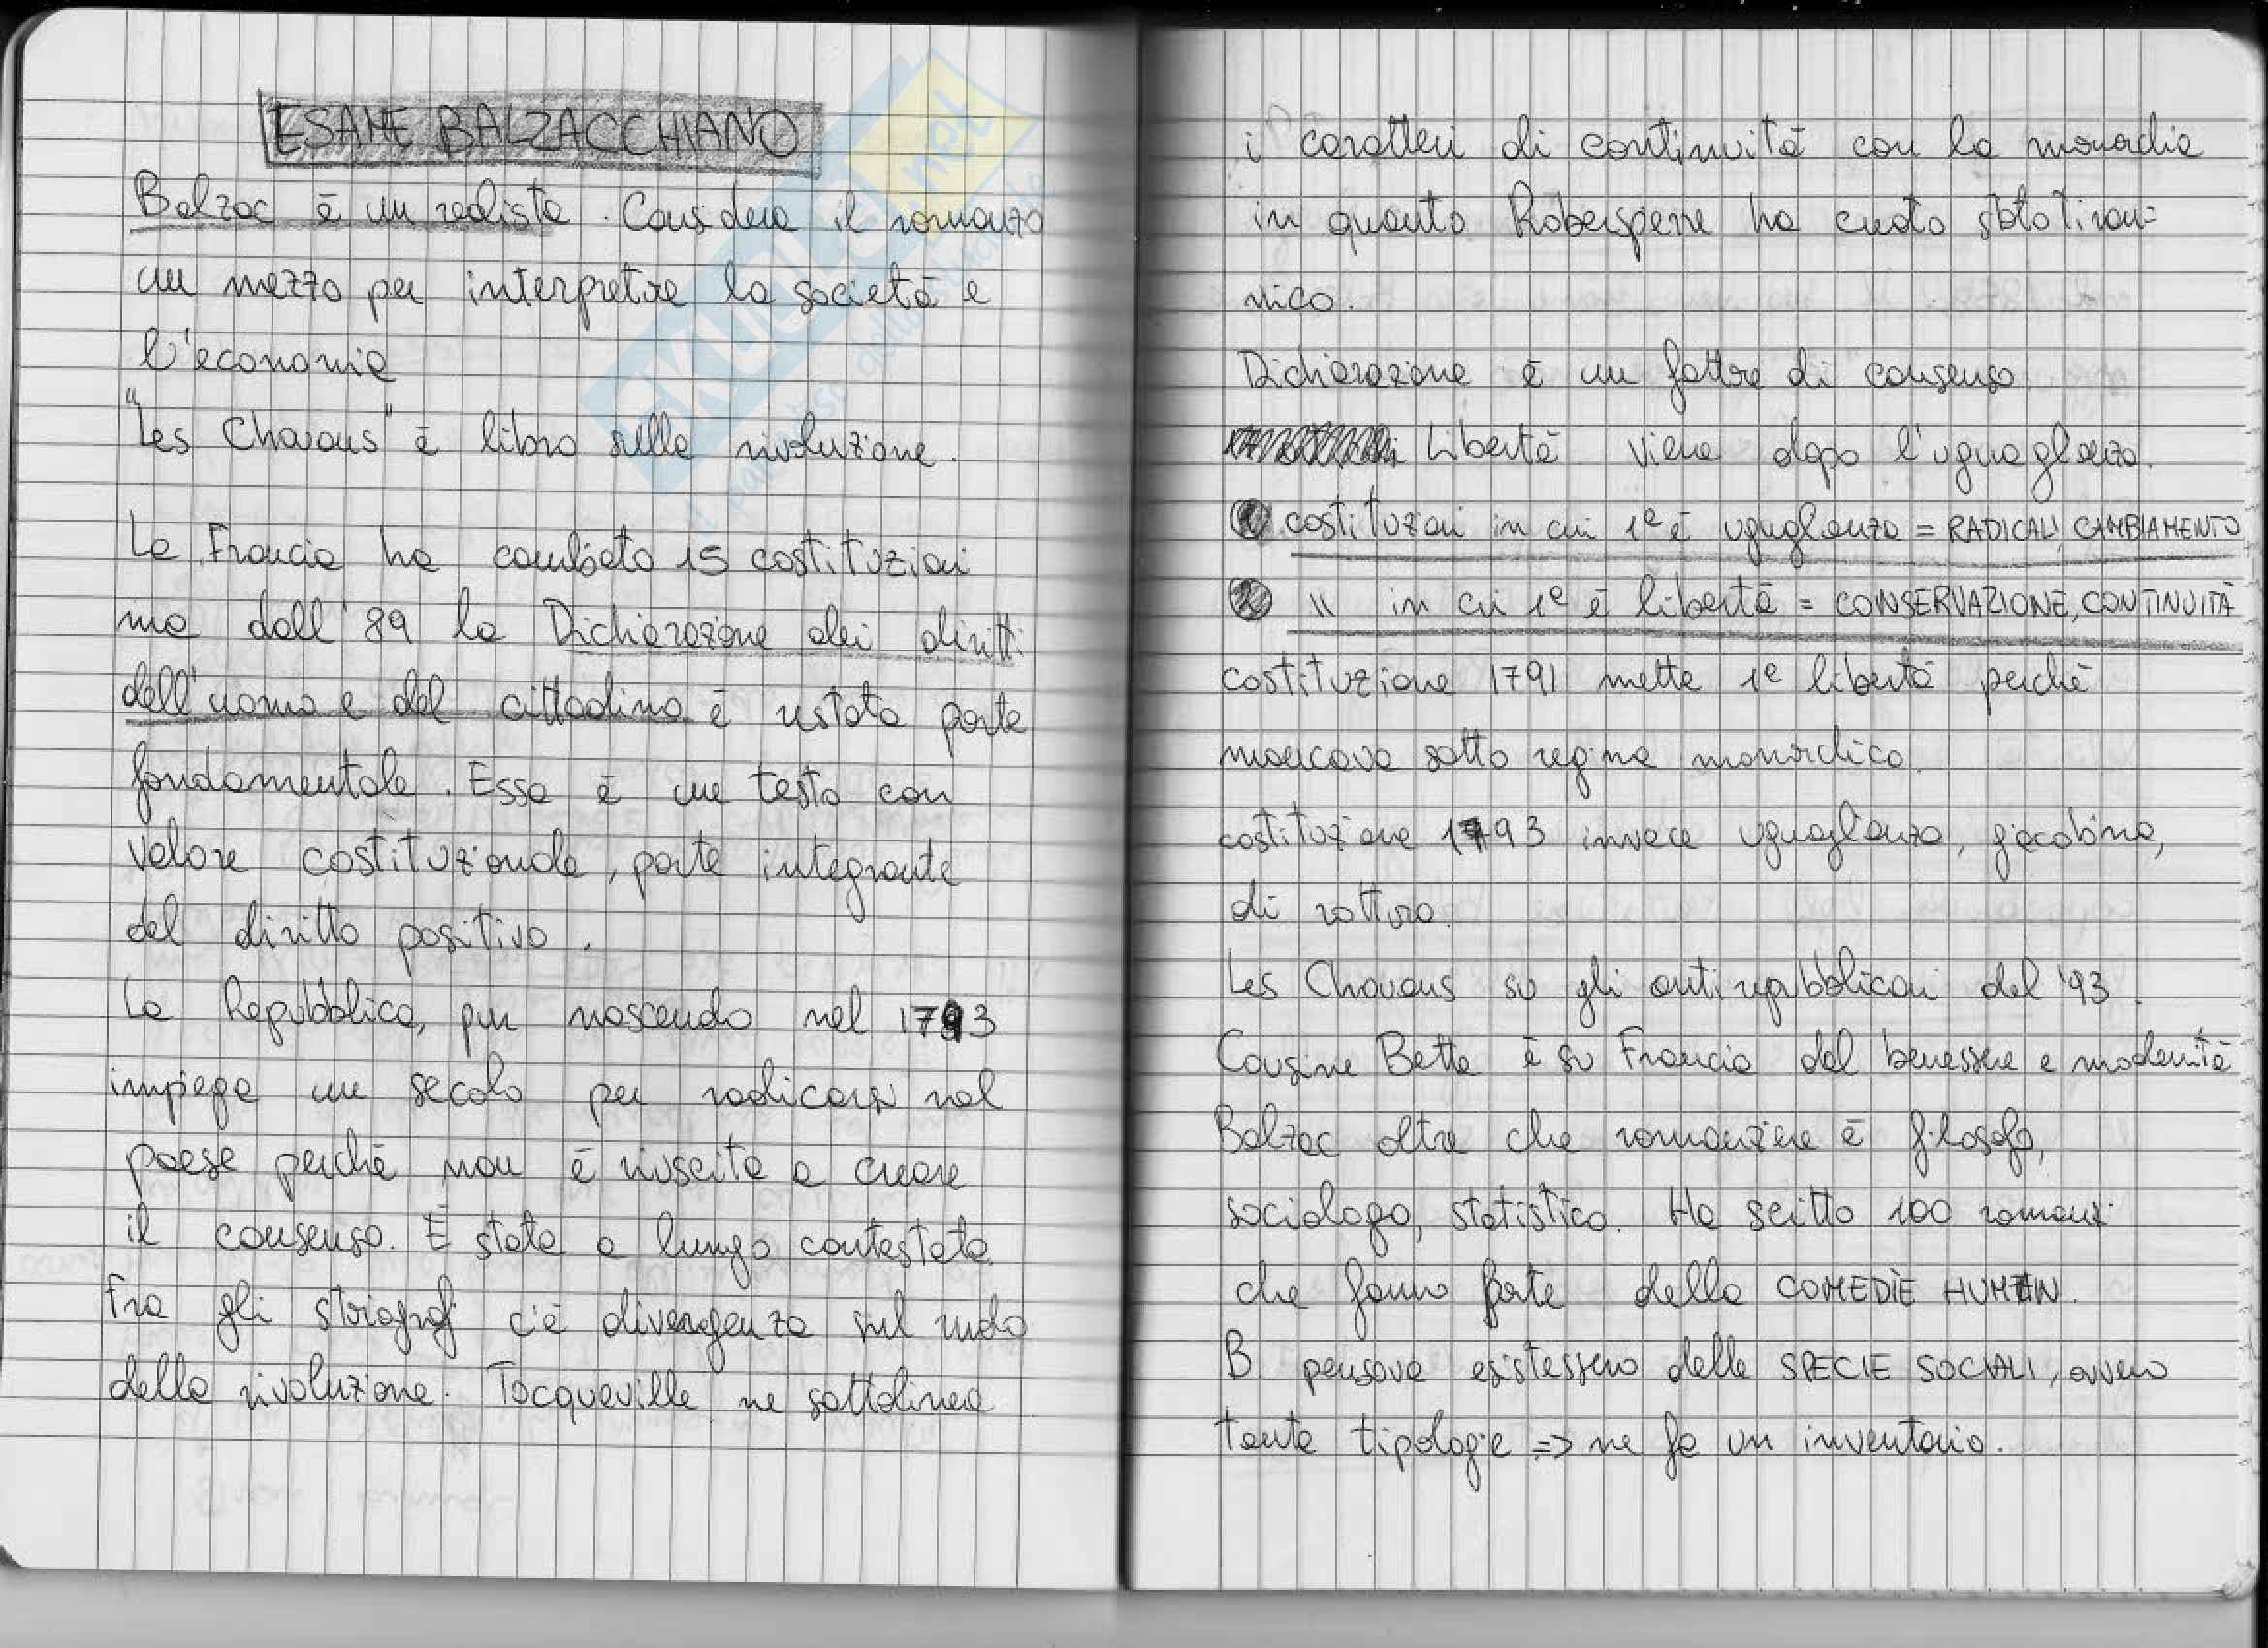 ESAME BALZACCHIANO
Balzac è un realista. Considera il romanzo
un mezzo per interpretare la società e
l'economia
"Les Chouans" è libro sulla rivoluzione.
La Francia ha cambiato 15 costituzioni
ma dall'89 la Dichiarazione dei diritti
dell'uomo e del cittadino è restata parte
fondamentale. Essa è un testo con
valore costituzionale, parte integrante
del diritto positivo.
La Repubblica, pur nascendo nel 1793
impiega un secolo per radicarsi nel
paese perchè non è riuscita a creare
il consenso. È stata a lungo contestata.
Fra gli storiografi c'è divergenza sul ruolo
della rivoluzione. Tocqueville ne sottolinea
i caratteri di continuità con la monarchia
in quanto Roberspierre ha creato stato tiran=
nico.
Dichiarazione è un fattore di consenso.
Libertà viene dopo l'uguaglianza.
1 costituzioni in cui 1ª è uguaglianza = RADICALI, CAMBIAMENTO
2 " in cui 1ª è libertà = CONSERVAZIONE, CONTINUITÀ
costituzione 1791 mette 1ª libertà perchè
mancava sotto regime monarchico.
costituzione 1793 invece uguaglianza, giacobina,
di rottura.
Les Chouans su gli antirepubblicani del '93.
Cousine Bette è su Francia del benessere e modernità
Balzac oltre che romanziere è filosofo,
sociologo, statistico. Ha scritto 100 romanzi
che fanno parte della COMEDIE HUMAIN.
B pensava esistessero delle SPECIE SOCIALI, ovvero
tante tipologie => ne fa un inventario.
SKUOLA.net